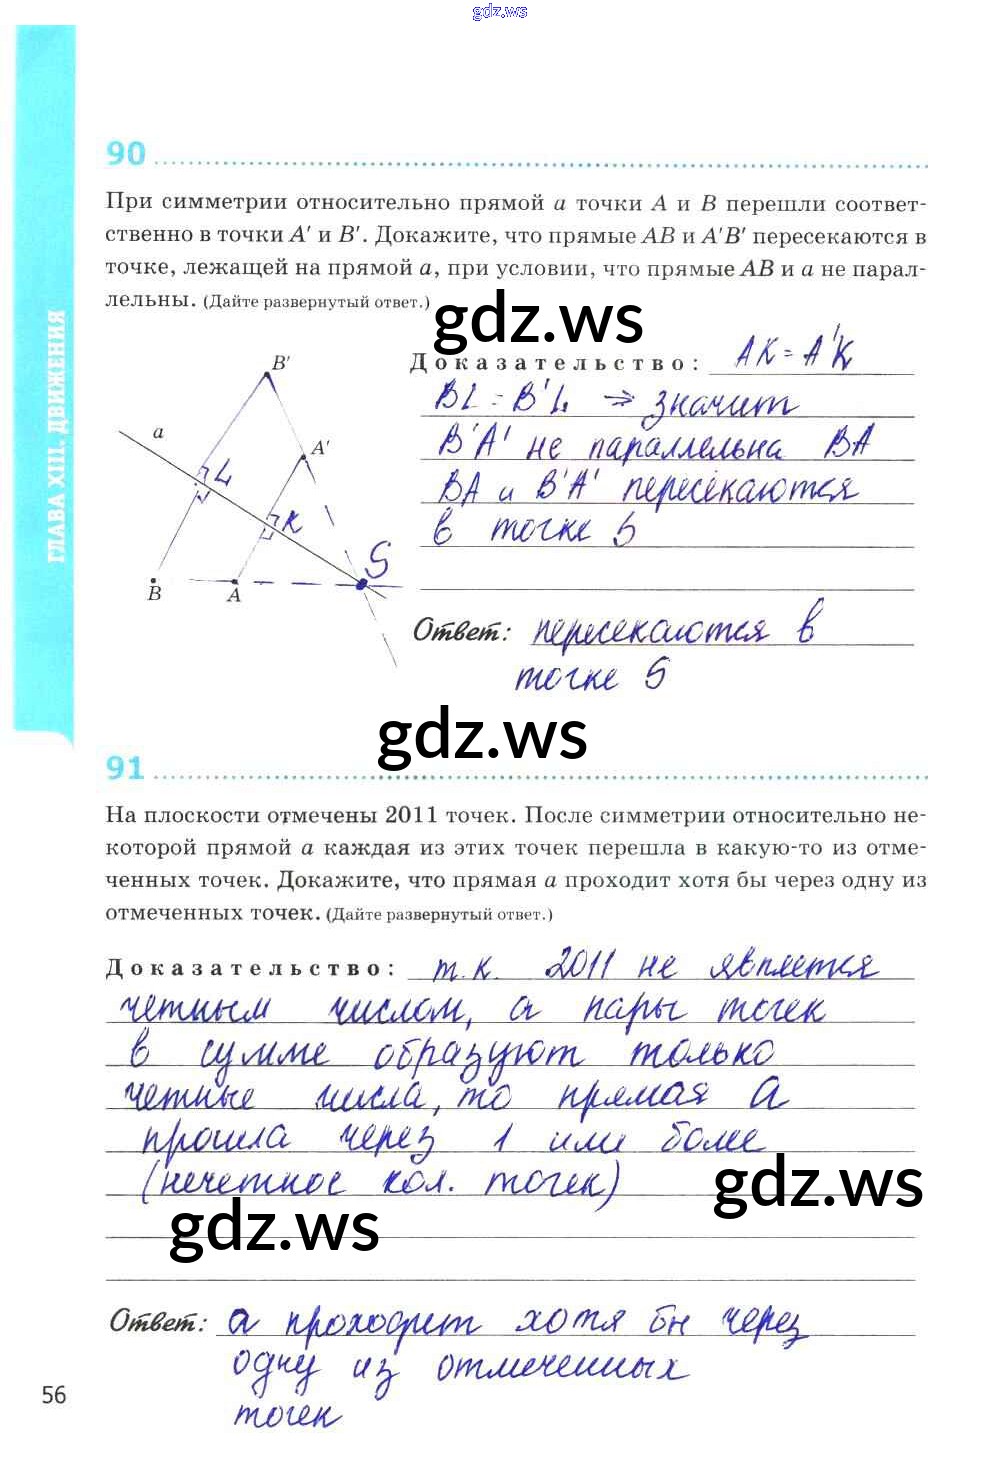 gdz.ws
90
При симметрии относительно прямой a точки A и B перешли соответ-
ственно в точки A′ и B′. Докажите, что прямые AB и A′B′ пересекаются в
точке, лежащей на прямой a, при условии, что прямые AB и a не парал-
лельны. (Дайте развернутый ответ.)
gdz.ws
ГЛАВА XIII. ДВИЖЕНИЯ
Доказательство: AK = A'K
BL = B'L ⇒ значит
B'A' не параллельна BA
BA и B'A' пересекаются
в точке S
B′
a
A′
L
K
S
B
A
Ответ: пересекаются в
точке S
gdz.ws
91
На плоскости отмечены 2011 точек. После симметрии относительно не-
которой прямой a каждая из этих точек перешла в какую-то из отме-
ченных точек. Докажите, что прямая a проходит хотя бы через одну из
отмеченных точек. (Дайте развернутый ответ.)
Доказательство: т.к. 2011 не является
четным числом, а пары точек
в сумме образуют только
четные числа, то прямая a
прошла через 1 или более
(нечетное кол. точек)
gdz.ws
gdz.ws
Ответ: a проходит хотя бы через
одну из отмеченных
точек
56